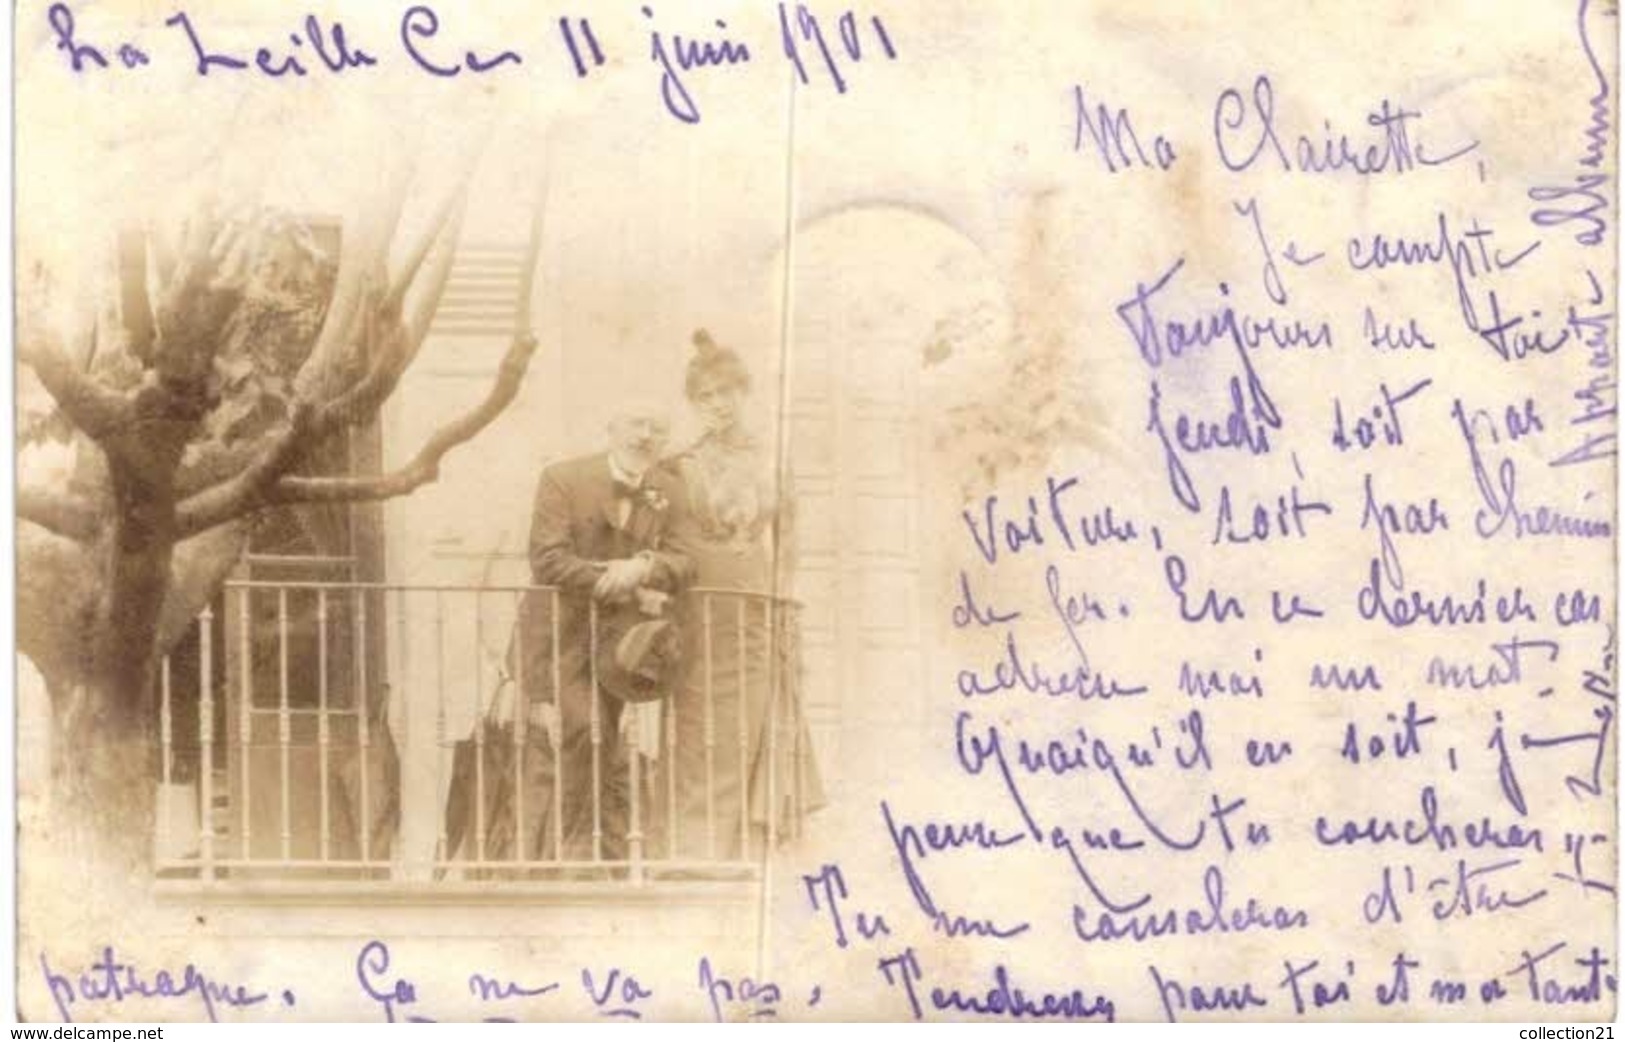 La Seille Cas 11 juin 1901
Ma Clairette,
Je compte
Toujours sur toi
jeudi, soit par
voiture, soit par chemin
de fer. En ce dernier cas
adresse moi un mot.
Quoiqu'il en soit, je
pense que tu coucheras
Tu me consoleras d'être
patraque. Ça ne va pas. Tendresses pour toi et ma tante
Apporte album
www.delcampe.net
collection21